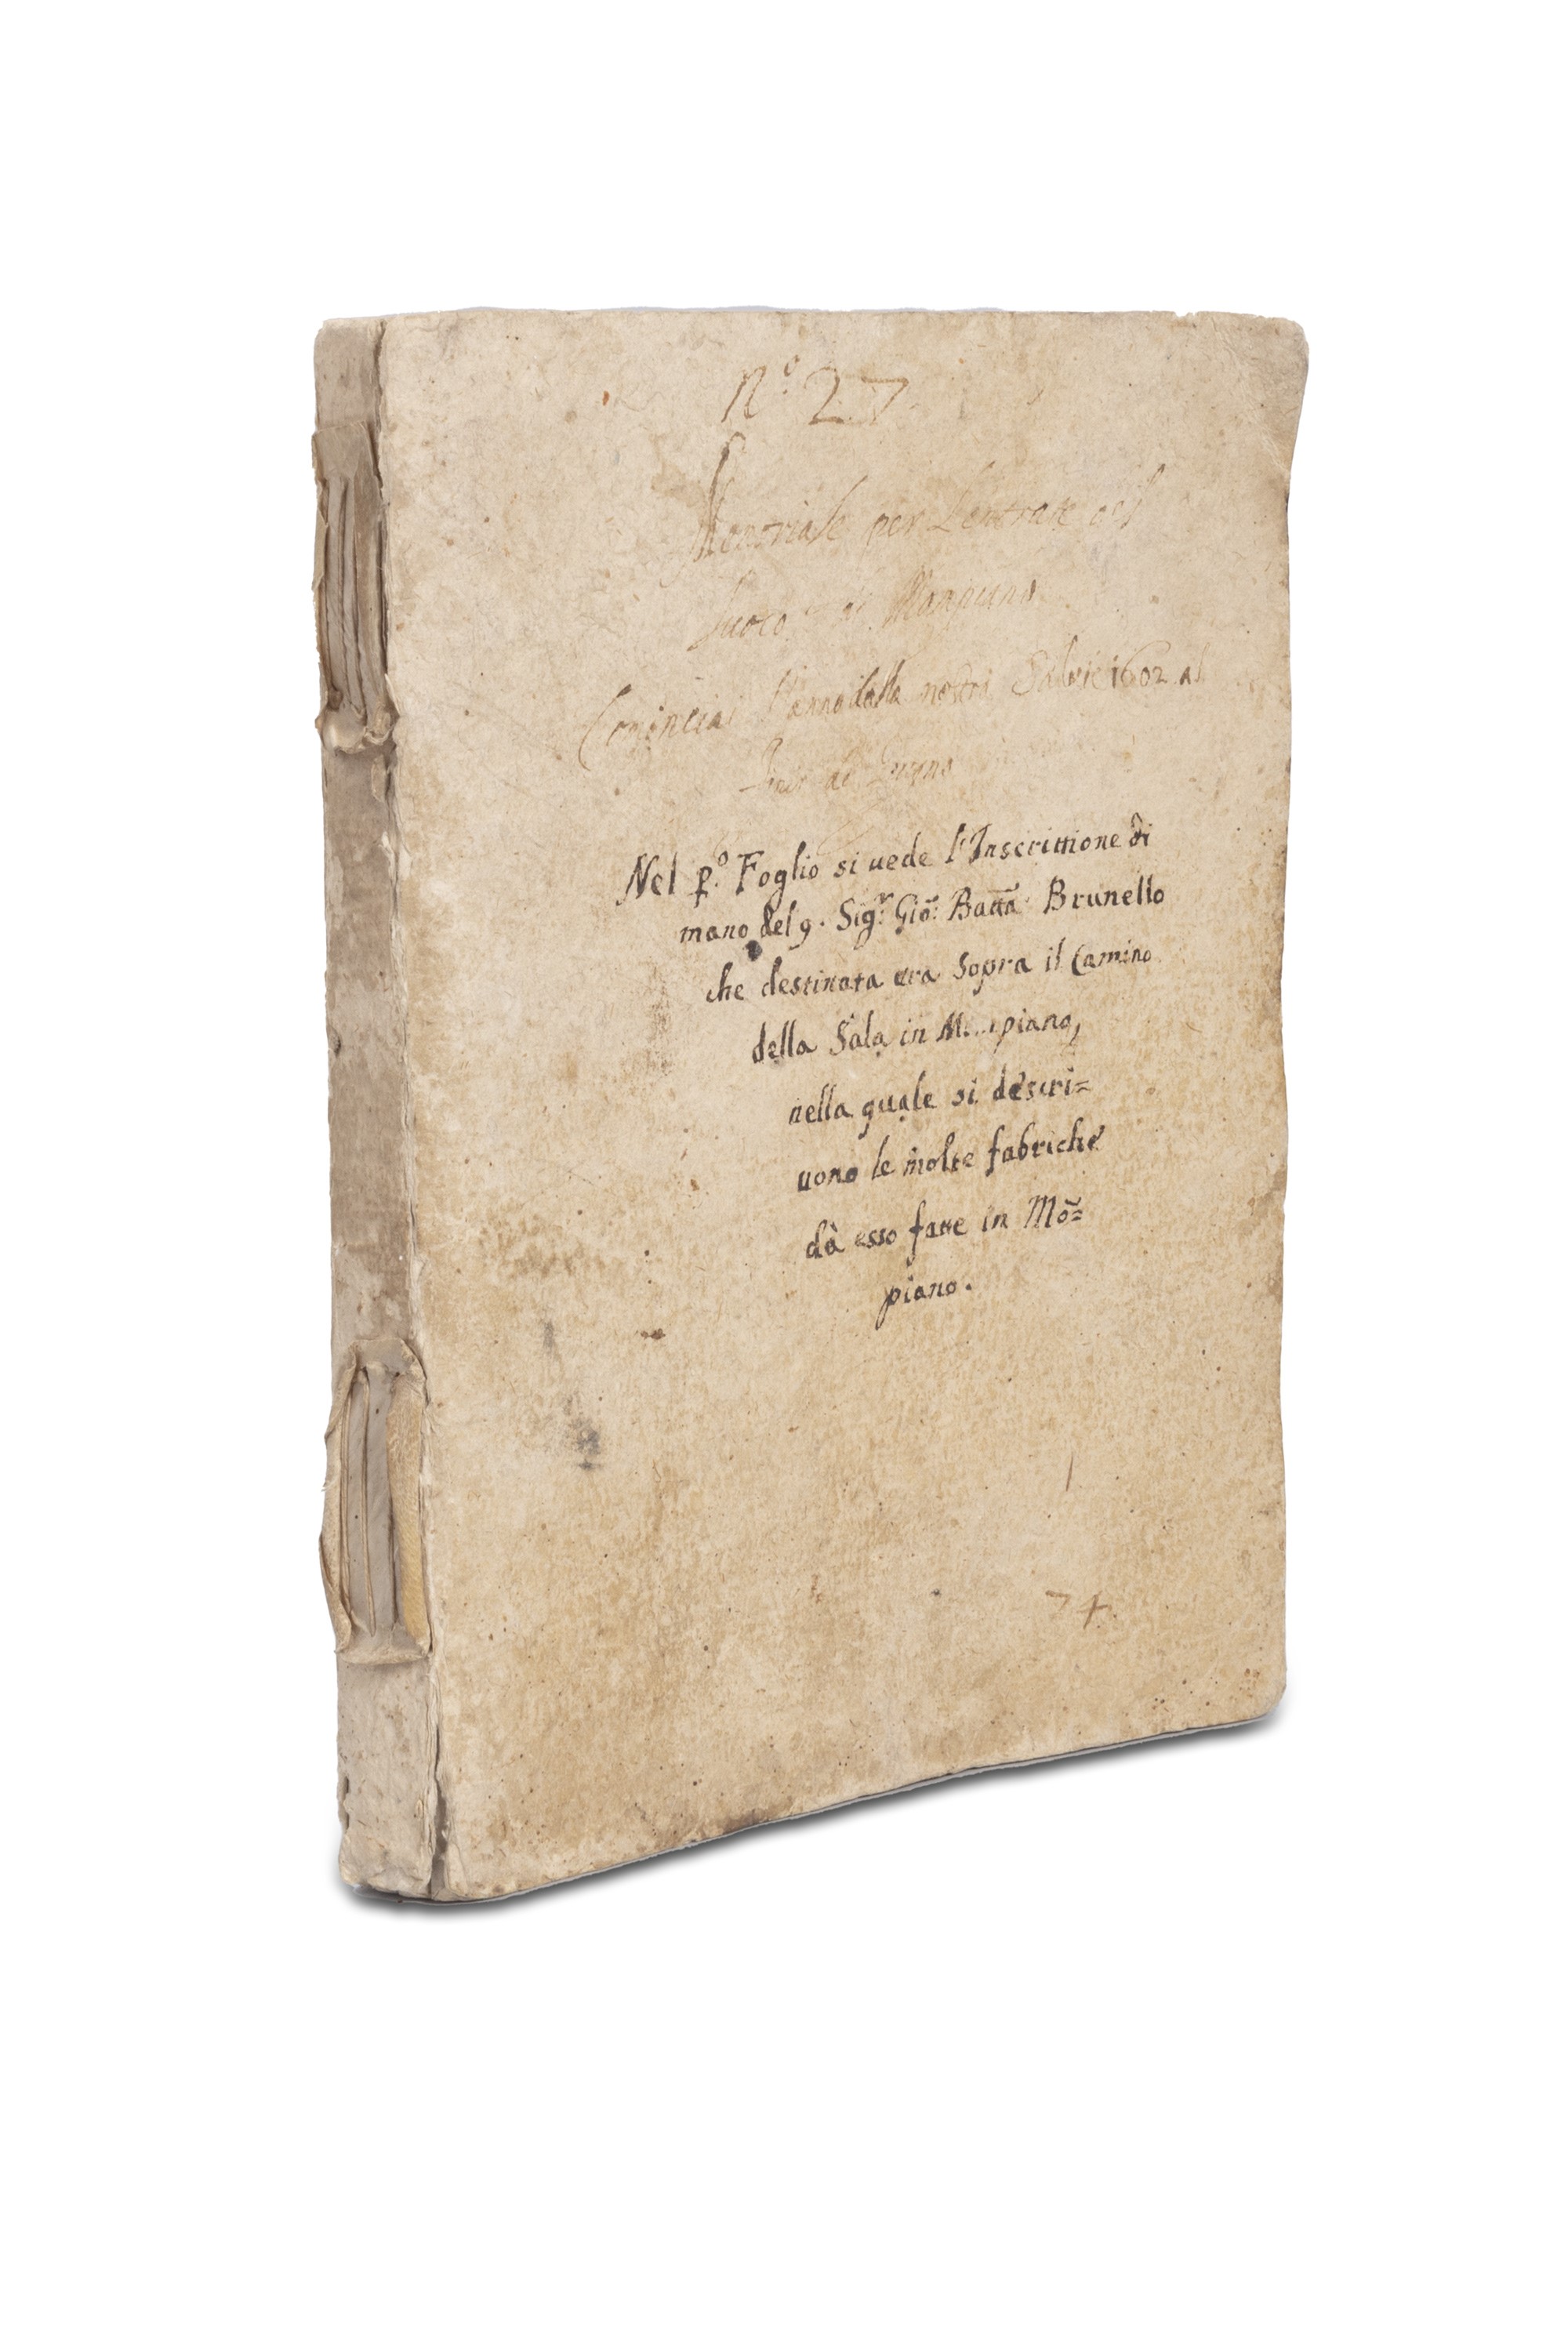 N.º 27
Memoriale per L'entrate del
luoco di Mompiano
Cominciai l'anno dalla nostra Salute 1602 al
di
Nel p.º Foglio si uede l'Inscrittione di
mano del q. Sig.r Giō: Batta: Brunello
che destinata era Sopra il Camino
della Sala in M...piano,
nella quale si descri=
uono le molte fabriche
dà esso fatte in Mō=
piano.
74